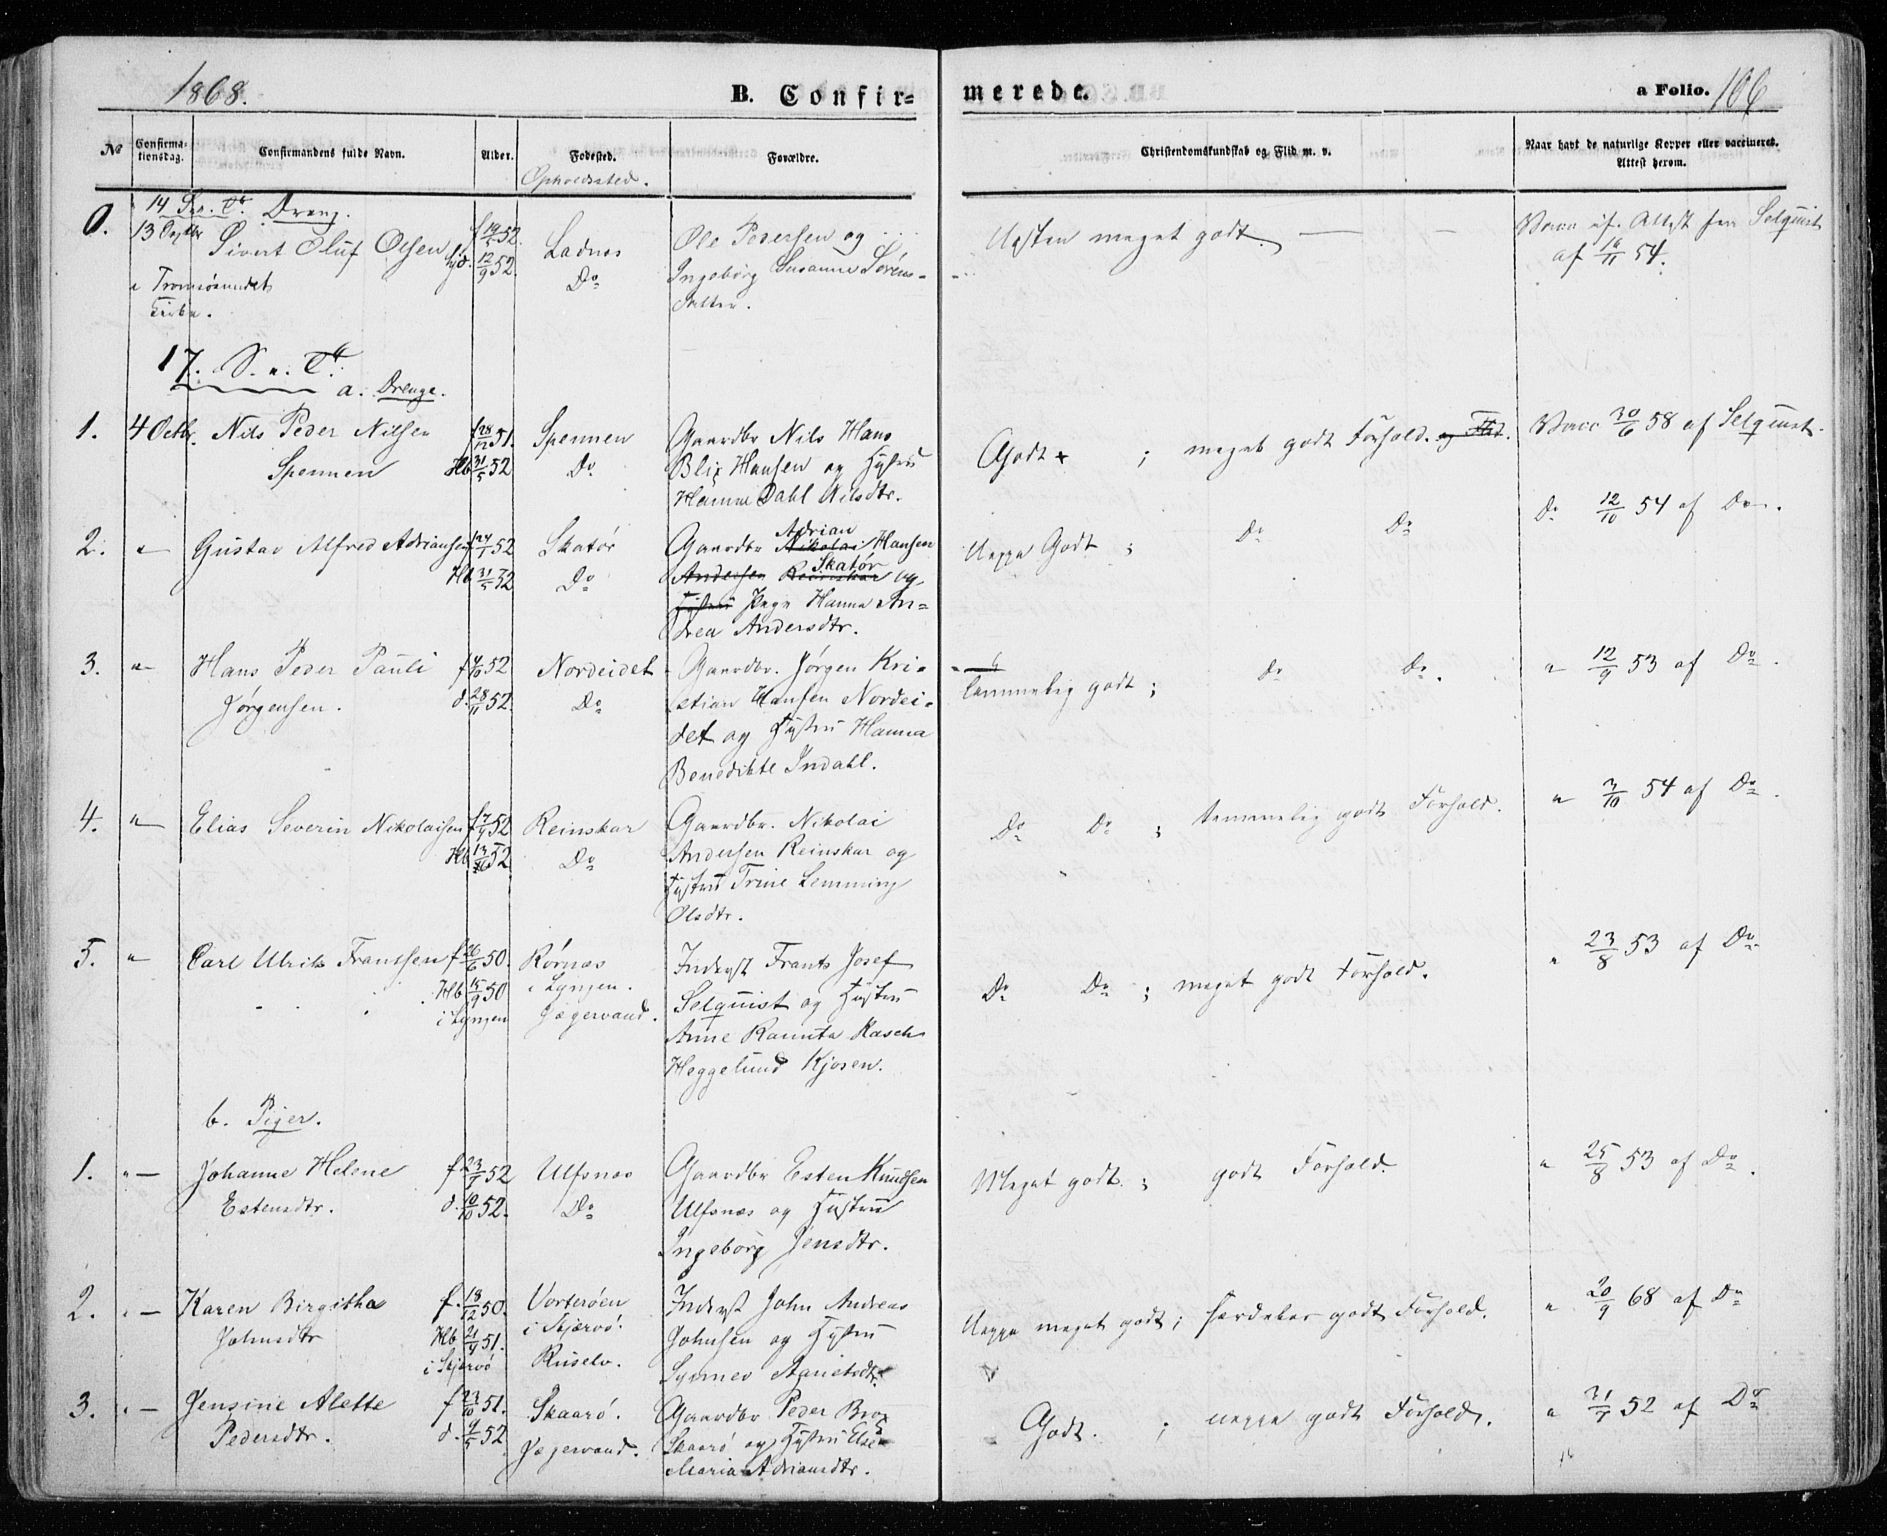 1868.
B. Confir=
merede.
a Folio. 106
No
Confirma-
tionsdag.
Confirmandens fulde Navn.
Alder.
Fødested.
Opholdssted.
Forældre.
Christendomskundskab og Flid m. v.
Naar havt de naturlige Kopper eller vaccineret.
Attest herom.
14 S. e. Tr. Dreng.
0. 13 Septbr Sivert Oluf Olsen f. 19/5 52. Ladnes Ole Pedersen og Næsten meget godt. Vacc. if. Attest fra Selquist
hjd. 12/9 52. Do Ingeborg Susanne Sørens- af 16/11 54.
i Tromsøsundet datter.
Kirke.
17. S. e. Tr.
a. Drenge.
1. 4 Octbr. Nils Peder Nilsen f 28/12 51. Spennen Gaardbr Nils Hans Godt ; meget godt Forhold. og Flid. Vacc 30/6 58 af Selquist.
Spennen Hb 31/5 52 Do Blix Hansen og Hustru
Hanna Dahl Nilsdtr.
2. " Gustav Alfred Adriansen f 24/1 52 Skatør Gaardbr Adrian Nikolai Hansen Neppe Godt ; Do Do Do 12/10 54 af Do.
Hb 31/5 52 Do Andersen Reinskar Skatør og
Hustru Pige Hanna An=
drea Andersdtr.
3. " Hans Peder Pauli f 4/10 52 Nordeidet Gaardbr. Jørgen Kri- temmelig godt ; Do Do. " 12/9 53 af Do.
Jørgensen. d. 28/11 52. Do stian Hansen Nordei-
det og Hustru Hanna
Benedikte Indahl.
4. " Elias Severin Nikolaisen f 7/9 52 Reinskar Gaardbr. Nikolai Do Do ; temmelig godt Forhold. " 3/10 54 af Do.
Hb 13/10 52 Do Andersen Reinskar og
Hustru Trine Lemming
Olsdtr.
5. " Carl Ulrik Frantsen f 26/6 50. Rørnes Inderst Frants Josef Do Do ; meget godt Forhold. " 23/8 53 af Do
Hb 15/9 50 i Lyngen. Selquist og Hustru
i Lyngen Jægervand. Anne Rasch
Heggelund Kjosen.
b. Piger.
1. " Johanne Helene f 23/7 52 Ulfsnes Gaardbr Esten Knudsen Meget godt. ; godt Forhold. " 25/8 53 af Do.
Estensdtr. d. 10/10 52. Do Ulfsnes og Hustru
Ingeborg Jensdtr.
2. " Karen Birgitha f. 18/12 50. Vorterøen Inderst John Andreas Neppe meget godt ; særdeles godt Forhold. " 20/9 68 af Do
Johnsdtr Hb 21/4 51. i Skjervø. Johnsen og Hustru
i Skjervø Ruselv. Synnev
3. " Jensine Alette f 23/10 51. Skaarø. Gaardbr Peder Brox Godt. ; neppe godt Forhold. " 31/7 52 af Do
Pedersdtr. d. 9/5 52 Jægervand. Skaarø og Hustru Else
Maria Adriansdtr.